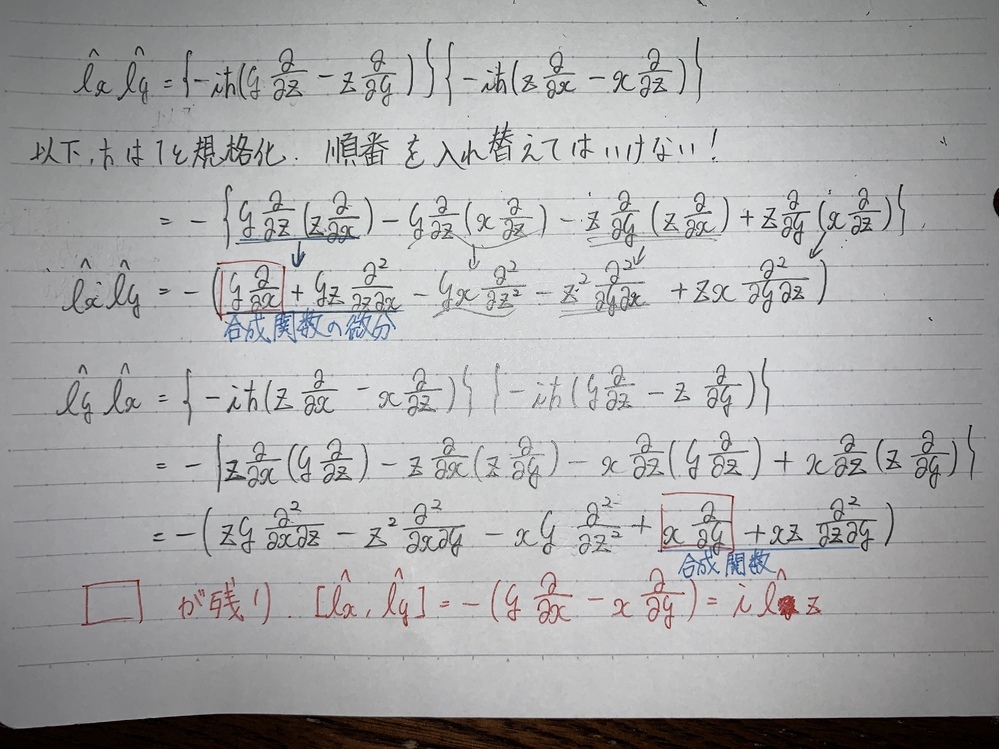 l̂x l̂y = {-iħ(y ∂/∂z - z ∂/∂y)}{-iħ(z ∂/∂x - x ∂/∂z)}
以下、ħは1と規格化. 順番を入れ替えてはいけない!
= -{y ∂/∂z(z ∂/∂x) - y ∂/∂z(x ∂/∂z) - z ∂/∂y(z ∂/∂x) + z ∂/∂y(x ∂/∂z)}
l̂x l̂y = -(y ∂/∂x + yz ∂²/∂z∂x - yx ∂²/∂z² - z² ∂²/∂y∂x + zx ∂²/∂y∂z)
合成関数の微分
l̂y l̂x = {-iħ(z ∂/∂x - x ∂/∂z)}{-iħ(y ∂/∂z - z ∂/∂y)}
= -{z ∂/∂x(y ∂/∂z) - z ∂/∂x(z ∂/∂y) - x ∂/∂z(y ∂/∂z) + x ∂/∂z(z ∂/∂y)}
= -(zy ∂²/∂x∂z - z² ∂²/∂x∂y - xy ∂²/∂z² + x ∂/∂y + xz ∂²/∂z∂y)
合成関数
□ が残り [l̂x, l̂y] = -(y ∂/∂x - x ∂/∂y) = i l̂z